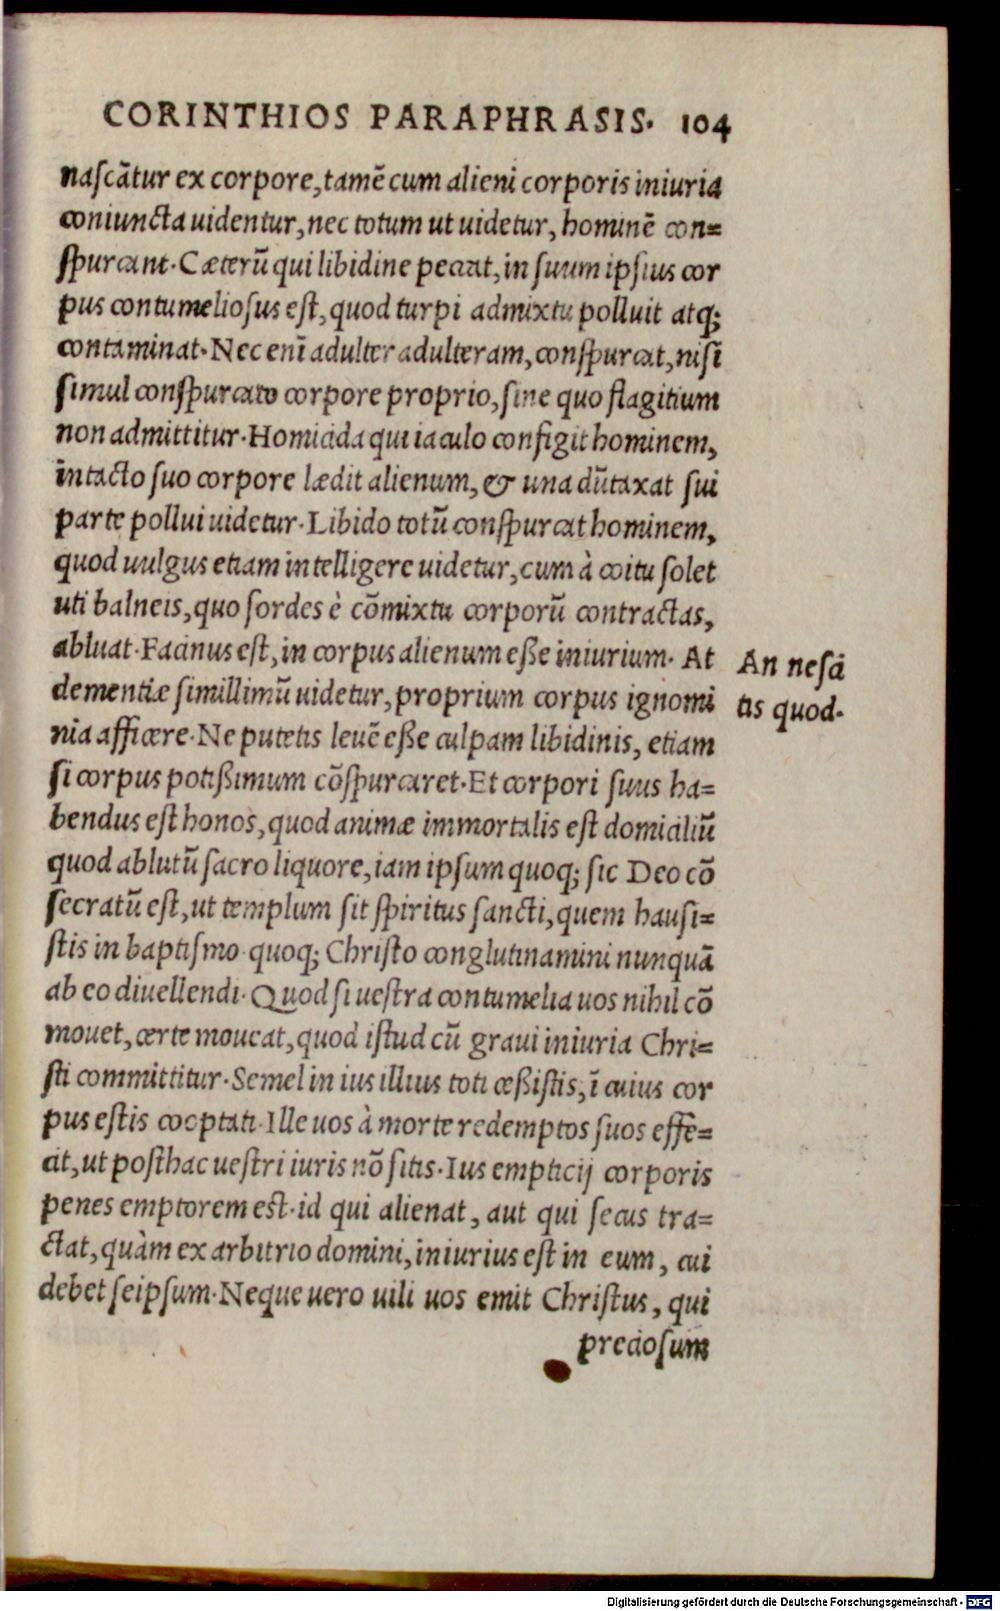 CORINTHIOS PARAPHRASIS. 104
naſcãtur ex corpore, tamẽ cum alieni corporis iniuria
coniuncta uidentur, nec totum ut uidetur, hominẽ con=
ſpurcant. Cæterũ qui libidine peccat, in ſuum ipſius cor
pus contumeliosus eſt, quod turpi admixtu polluit atq;
contaminat. Nec enĩ adulter adulteram, conſpurcat, niſi
ſimul conſpurcato corpore proprio, ſine quo flagitium
non admittitur. Homicida qui iaculo configit hominem,
intacto ſuo corpore lædit alienum, & una dũtaxat ſui
parte pollui uidetur. Libido totũ conſpurcat hominem,
quod uulgus etiam intelligere uidetur, cum à coitu ſolet
uti balneis, quo ſordes è cõmixtu corporũ contractas,
abluat. Facinus eſt, in corpus alienum eße iniurium. At
dementiæ ſimillimũ uidetur, proprium corpus ignomi
nia afficere. Ne putetis leuẽ eße culpam libidinis, etiam
ſi corpus potißimum cõſpurcaret. Et corpori ſuus ha=
bendus eſt honos, quod animæ immortalis eſt domiciliũ
quod ablutũ ſacro liquore, iam ipſum quoq; ſic Deo cõ
ſecratũ eſt, ut templum ſit ſpiritus ſancti, quem hauſi=
ſtis in baptiſmo quoq; Chriſto conglutinamini nunquã
ab eo diuellendi. Quod ſi ueſtra contumelia uos nihil cõ
mouet, certe moueat, quod iſtud cũ graui iniuria Chri=
ſti committitur. Semel in ius illius toti ceßiſtis, ĩ cuius cor
pus eſtis cooptati. Ille uos à morte redemptos ſuos effe=
cit, ut poſthac ueſtri iuris nõ ſitis. Ius empticij corporis
penes emptorem eſt. id qui alienat, aut qui ſecus tra=
ctat, quàm ex arbitrio domini, iniurius eſt in eum, cui
debet ſeipſum. Neque uero uili uos emit Chriſtus, qui
precioſum
An neſci
tis quod.
Digitalisierung gefördert durch die Deutsche Forschungsgemeinschaft - DFG